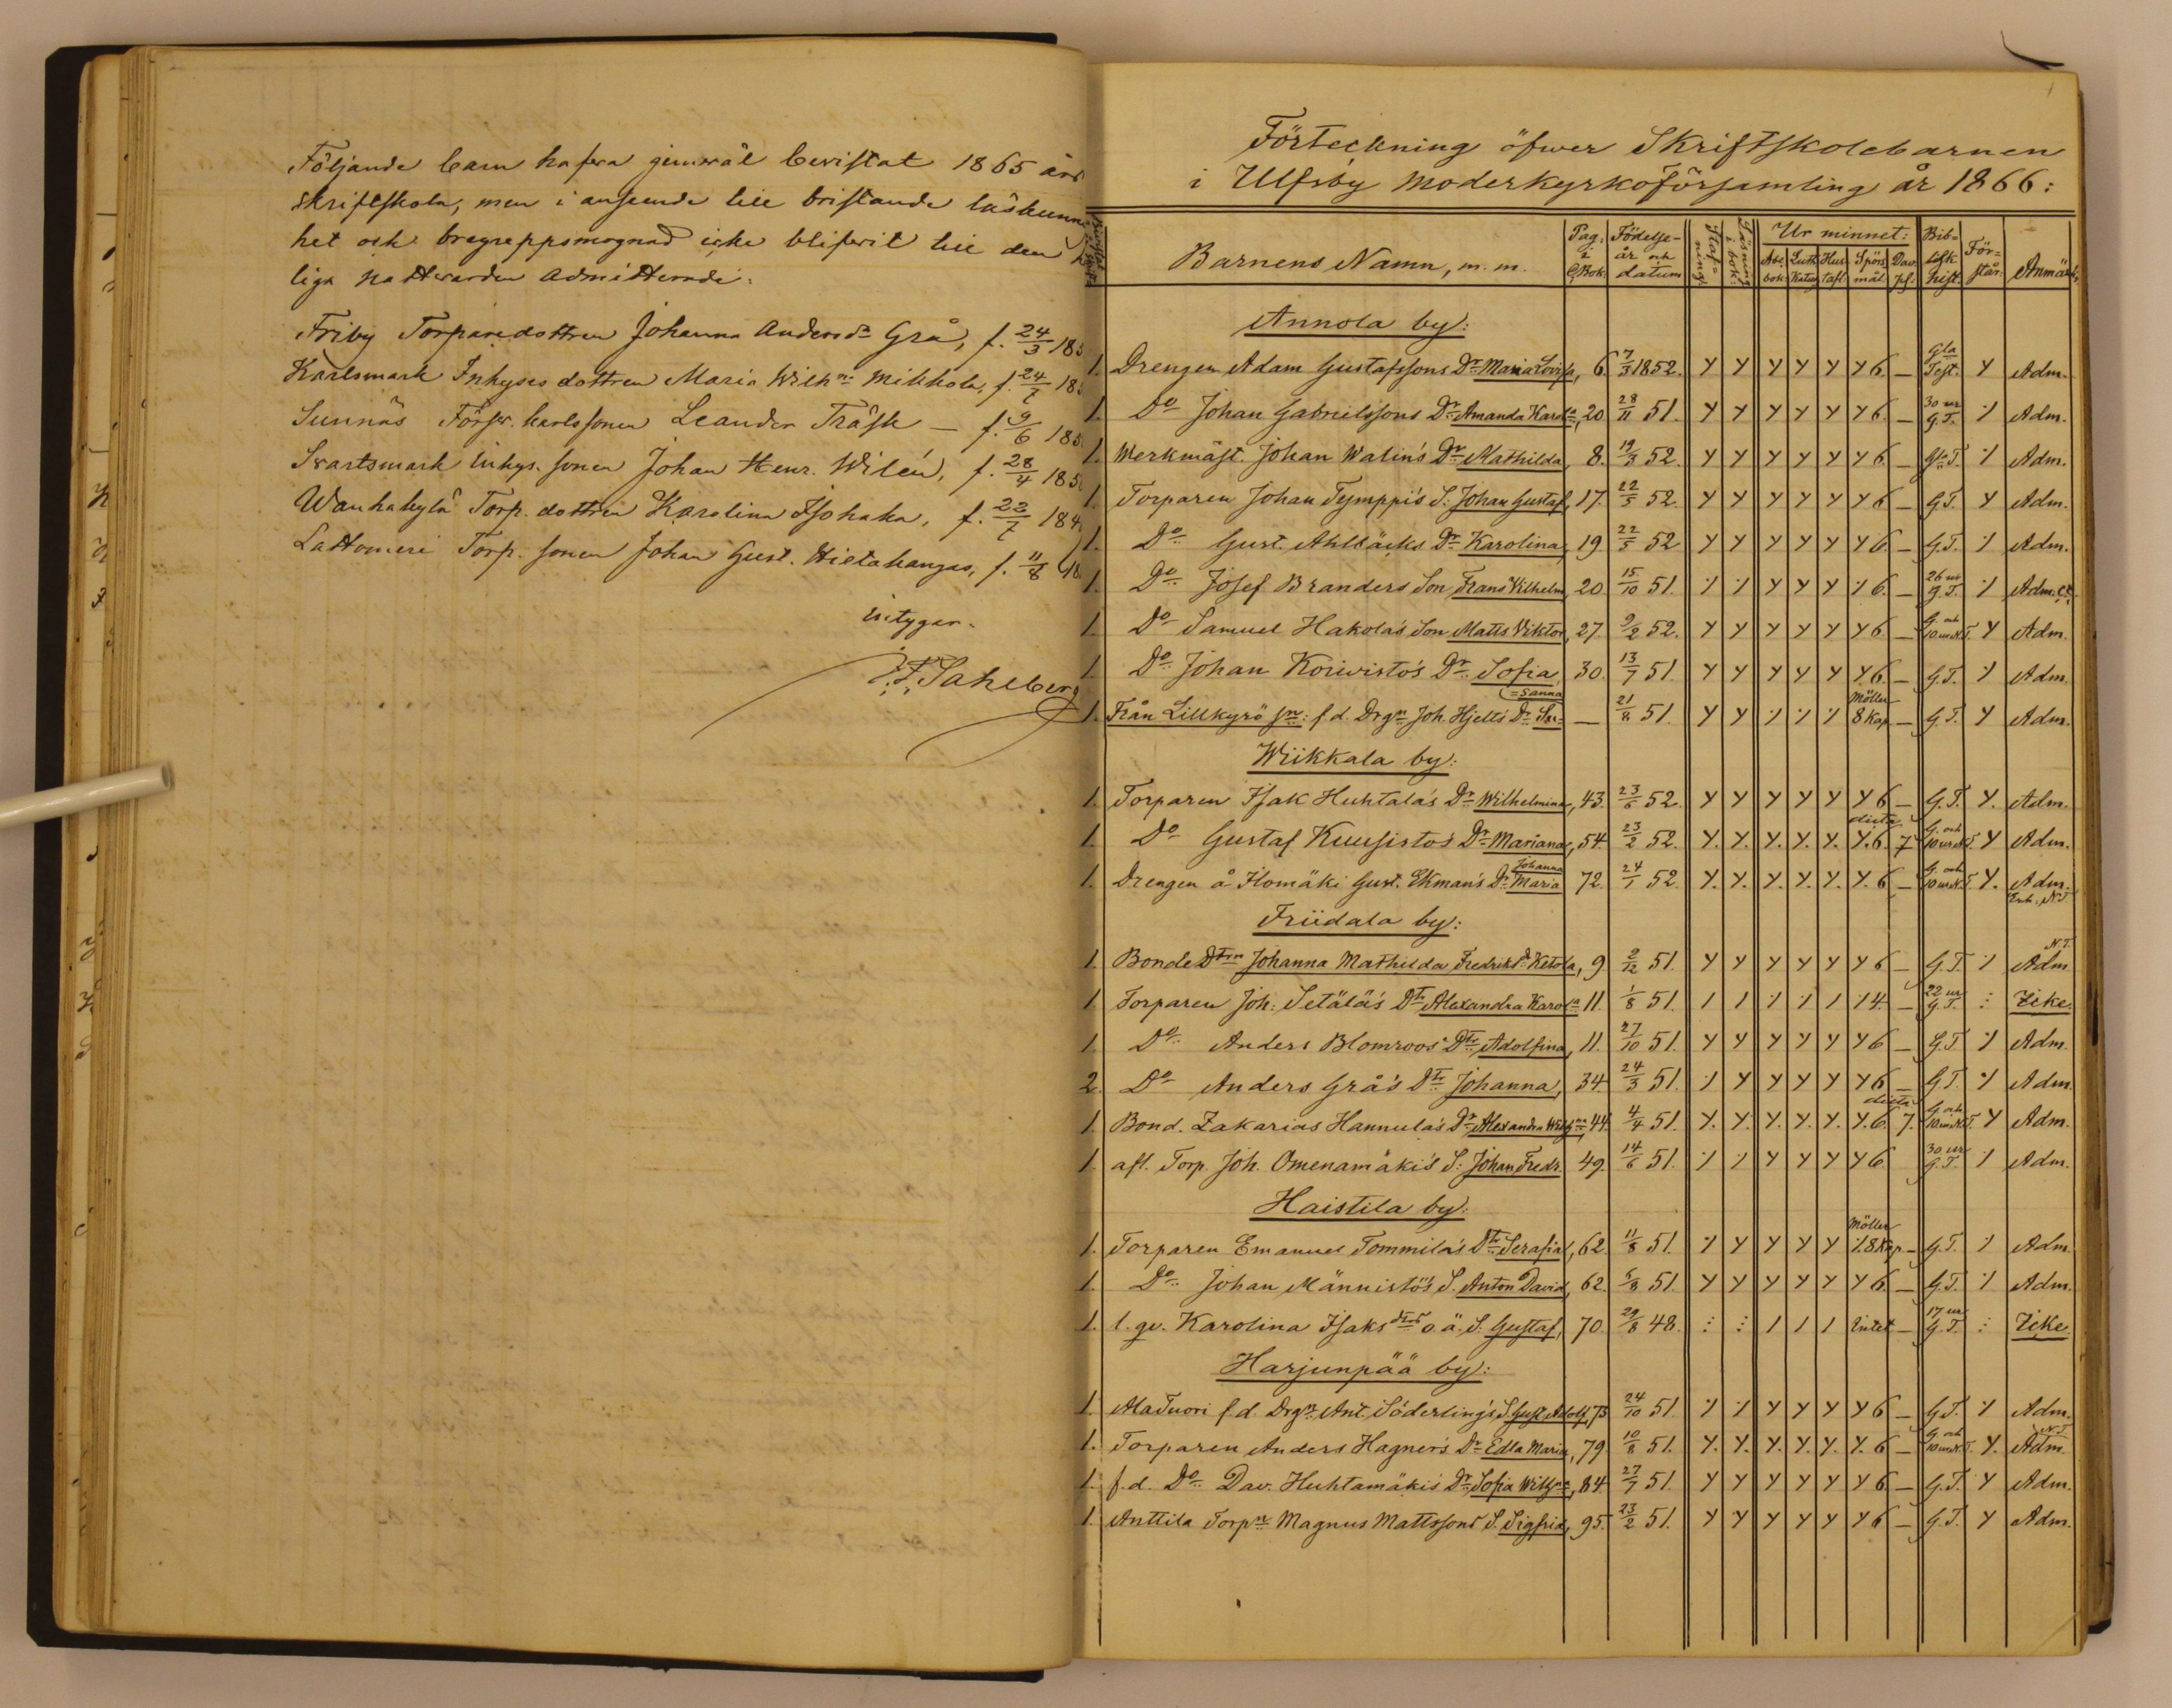 Följande barn hafva jemväl bevistat 1865 års
skriftskola, men i anseende till bristande läskunnig
het och begreppsmognad icke blifvit till den
liga nattvarden admitterade:
Friby Torparedottren Johanna Andersdr Grå, f. 24/3 185
Karlsmark Inhyses dottren Maria Wilhna Mikkola, f. 24/7 185
Sunnäs Förfr. karlssonen Leander Träsk — f. 9/6 185
Svartsmark inhys. sonen Johan Henr. Wilén, f. 28/4 185
Wanhakylä Torp. dottren Karolina Isohaka, f. 22/7 184
Lattomeri Torp. sonen Johan Gust. Hietakangas, f. 11/8 18
intygar.
J. F. Sahlberg
Förteckning öfwer Skriftskolebarnen
i Ulfsby Moderkyrkoförsamling år 1866:
Barnens Namn, m. m. Pag: i C. Bok. Födelse-år och datum Staf-ning Läsning i bok: Ur minnet: Abc bok. Luth. Katen Hus tafl. Spörs mål. Dav. ps: Bib-lisk hist. För-stån. Anmärk.
Annola by:
1. Drengen Adam Gustafssons Dr Maria Lovisa, 6. 7/3 1852. Y Y Y Y Y Y 6. — Gla Test. Y Adm.
1. Do Johan Gabrielssons Dr Amanda Karola, 20 28/11 51. Y Y Y Y Y Y 6. — 30 ur G.T. ⁒ Adm.
1. Werkmäst. Johan Walin's Dr Mathilda, 8. 19/3 52. Y Y Y Y Y Y 6. — Gla T. ⁒ Adm.
1. Torparen Johan Tymppi's S: Johan Gustaf, 17. 22/5 52. Y Y Y Y Y Y 6 — G.T. Y Adm.
1. Do Gust. Ahlbäcks Dr Karolina, 19 22/5 52 Y Y Y Y Y Y 6. — G.T. ⁒ Adm.
1. Do Josef Branders Son Frans Wilhelm 20. 15/10 51. ⁒ ⁒ Y Y Y ⁒ 6. — 26 ur G.T. ⁒ Adm.
1. Do Samuel Hakola's Son Matts Viktor, 27. 9/2 52. Y Y Y Y Y Y 6. — G. och 10 ur N.T. Y Adm.
1. Do Johan Koivisto's Dr Sofia, 30. 13/7 51. Y Y Y Y Y Y 6. — G.T. ⁒ Adm.
1. Från Lillkyrö sn: f. d. Drgn Joh. Hjelt's Dr Su- (=Sanna — 21/8 51. Y Y ⁒ ⁒ ⁒ Möller 8 Kap — G.T. Y Adm.
Wiikkala by:
1. Torparen Isak Huhtala's Dr Wilhelmina, 43. 23/6 52. Y Y Y Y Y Y 6 — G.T. Y. Adm.
1. Do Gustaf Kuusisto's Dr Mariana, 54. 23/2 52. Y. Y. Y. Y. Y. dicta Y. 6. 7 G. och 10 ur N.T. Y Adm.
1. Drengen å Ilomäki Gust. Ekman's Dr Johanna Maria 72. 24/1 52 Y. Y. Y. Y. Y. Y. 6 — G. och 10 ur N.T. Y. Adm. N.T.
Friidala by:
1. Bonde Dtrn Johanna Mathilda Fredriksd Ketola, 9 2/12 51. Y Y Y Y Y Y 6 — G.T. ⁒ N.T. Adm.
1. Torparen Joh. Setälä's Dtr Alexandra Karola 11. 1/8 51. / / ⁒ ⁒ / ⁒ 4. — 22 ur G.T. : Icke.
1. Do Anders Blomroos' Dtr Adolfina, 11. 27/10 51. Y Y Y Y Y Y 6 — G.T. ⁒ Adm.
2. Do Anders Grå's Dtr Johanna, 34. 24/3 51. ⁒ Y Y Y Y Y 6. — G.T. ⁒ Adm.
1. Bond. Zakarias Hannula's Dr Alexandra Wilhna, 44. 4/4 51. Y. Y. Y. Y. Y. dicta Y. 6. 7. G. och 10 ur N.T. Y Adm.
1. afl. Torp. Joh. Omenamäki's S: Johan Fredr. 49. 14/6 51. ⁒ ⁒ Y Y Y Y 6. 30 ur G.T. ⁒ Adm.
Haistila by:
1. Torparen Emanuel Tommila's Dtr Serafia, 62. 11/8 51. ⁒ Y Y Y Y Möller ⁒ 8 Kap — G.T. ⁒ Adm.
1. Do Johan Männistö's S. Anton David, 62. 6/8 51. Y Y Y Y Y Y 6. — G.T. ⁒ Adm.
1. l. qv. Karolina Isaks dtrs o. ä. S. Gustaf, 70. 29/8 48. : : / / / Intet — 17 ur G.T. : Icke.
Harjunpää by:
1. AlaTuori f. d. Drgn Ant. Söderling's S. Gust Adolf, 73 24/10 51. ⁒ ⁒ Y Y Y Y 6 — G.T. ⁒ Adm.
1. Torparen Anders Hagner's Dr Edla Maria, 79 10/8 51. Y. Y. Y. Y. Y. Y. 6 — G. och 10 ur N.T. Y. N.T. Adm.
1. f. d. Do Dav. Huhtamäki's Dr Sofia Wilhna, 84. 27/7 51. Y Y Y Y Y Y 6 — G.T. Y Adm.
1. Anttila Torpn Magnus Mattssons S. Sigfrid, 95. 23/2 51. Y Y Y Y Y Y 6 — G.T. Y Adm.